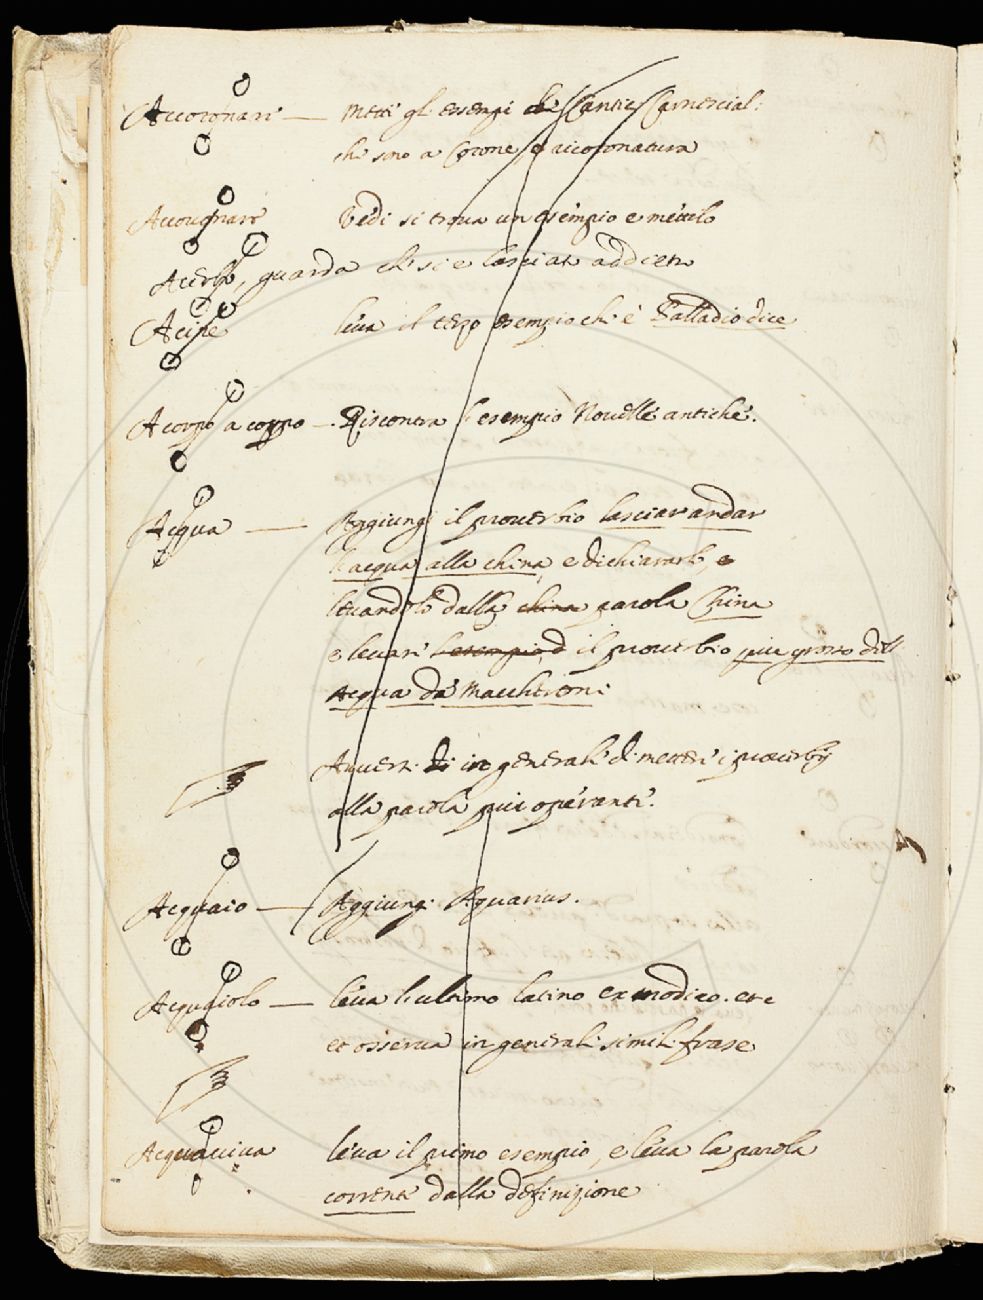 Accoronare — Metti gl' essempi de Cantic Carnescial:
che sono a Corone, o aicoronatura
Accougnare Vedi si troua un esempio e mettilo
Acerbo, guarda ch' si è lasciato addietro
Acipe leua il terzo esempio ch' è Palladio dice
A corpo a corpo —. Riscontra l'esempio Nouelle antiche.
Acqua — Aggiungi il prouerbio lasciar andar
l'acqua alla china, e dichiararlo, e
leuandolo dalla china parola China
e leuare l'esempio, d il prouerbio piu grosso dell
Acqua de Maccheroni
Auuert. di in generale d. mettere i prouerbij
alla parola piu operante.
Acquaio — Aggiung. Aquarius.
Acquaiolo — leua l'ultimo latino ex modico. etc
et osserua in general. simil. frase
Acquauiua leua il primo esempio, e leua la parola
corrente dalla definizione